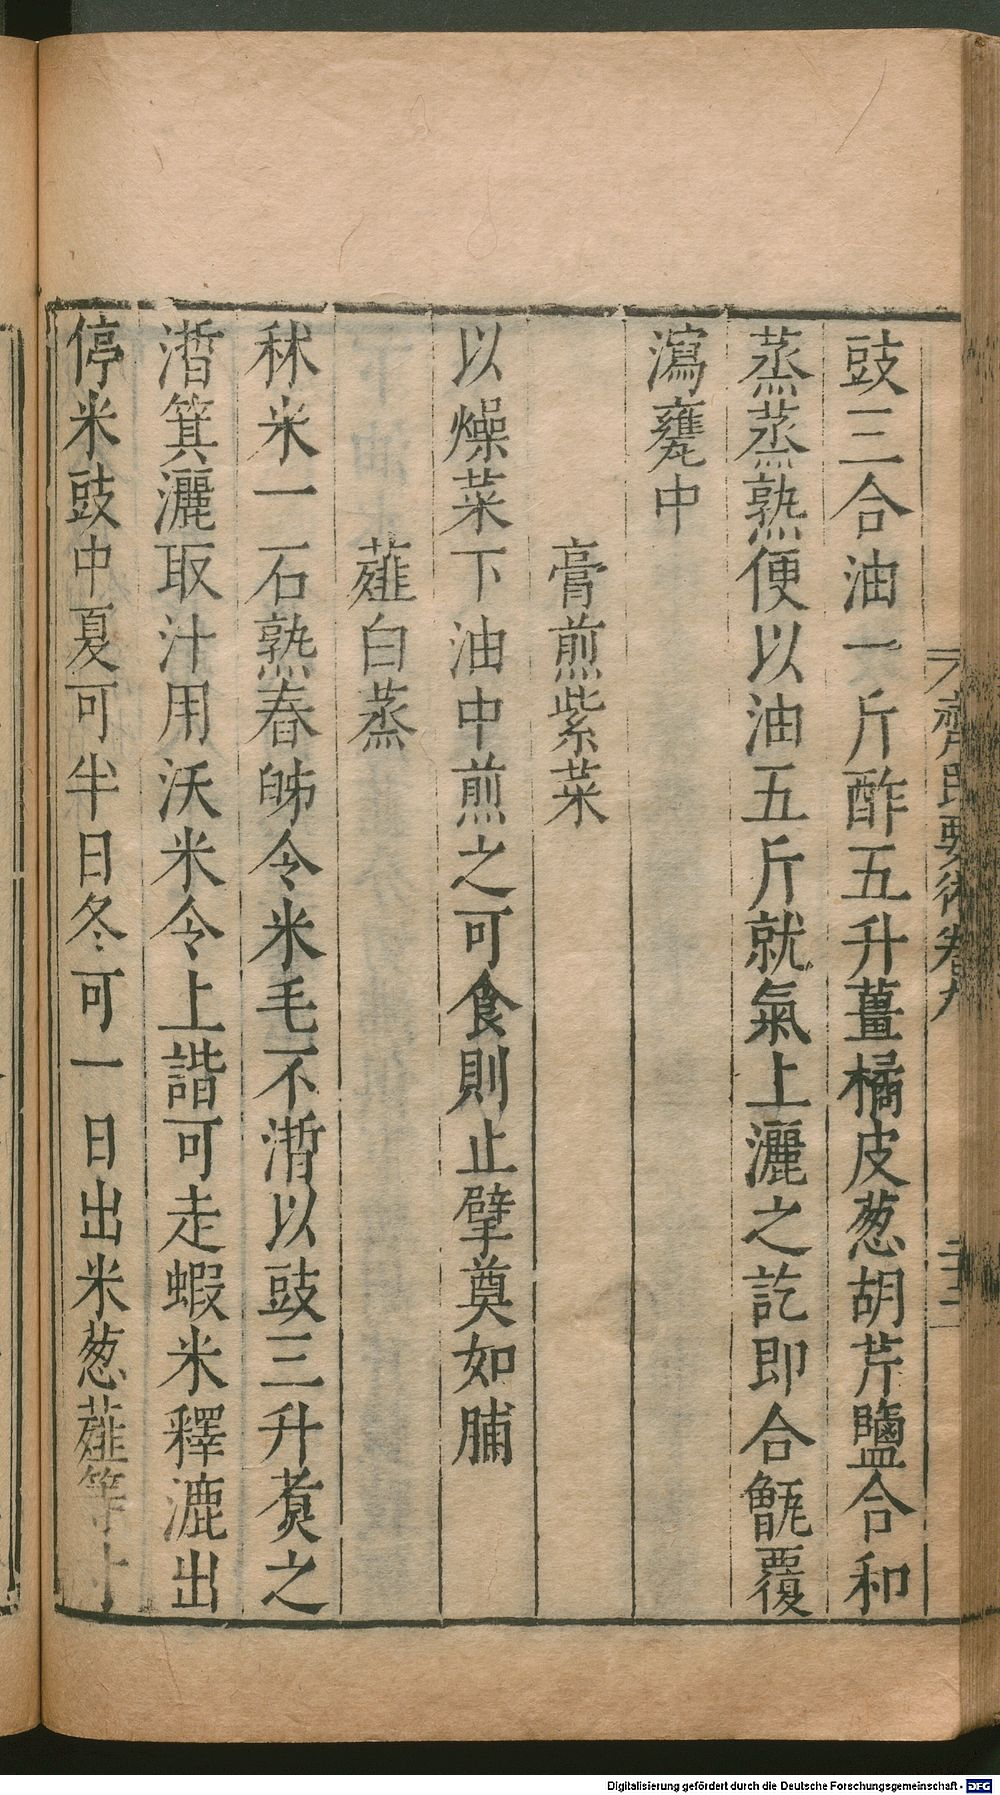 豉三合油一斤酢五升薑橘皮葱胡芹鹽合和
蒸蒸熟便以油五斤就氣上灑之訖即合甑覆
瀉甕中
膏煎紫菜
以燥菜下油中煎之可食則止擘奠如脯
薤白蒸
秫米一石熟舂䏶令米毛不渻以豉三升煑之
渻箕灑取汁用沃米令上諧可走蝦米釋漉出
停米豉中夏可半日冬可一日出米葱薤等寸
齊民要術卷九
Digitalisierung gefördert durch die Deutsche Forschungsgemeinschaft - DFG